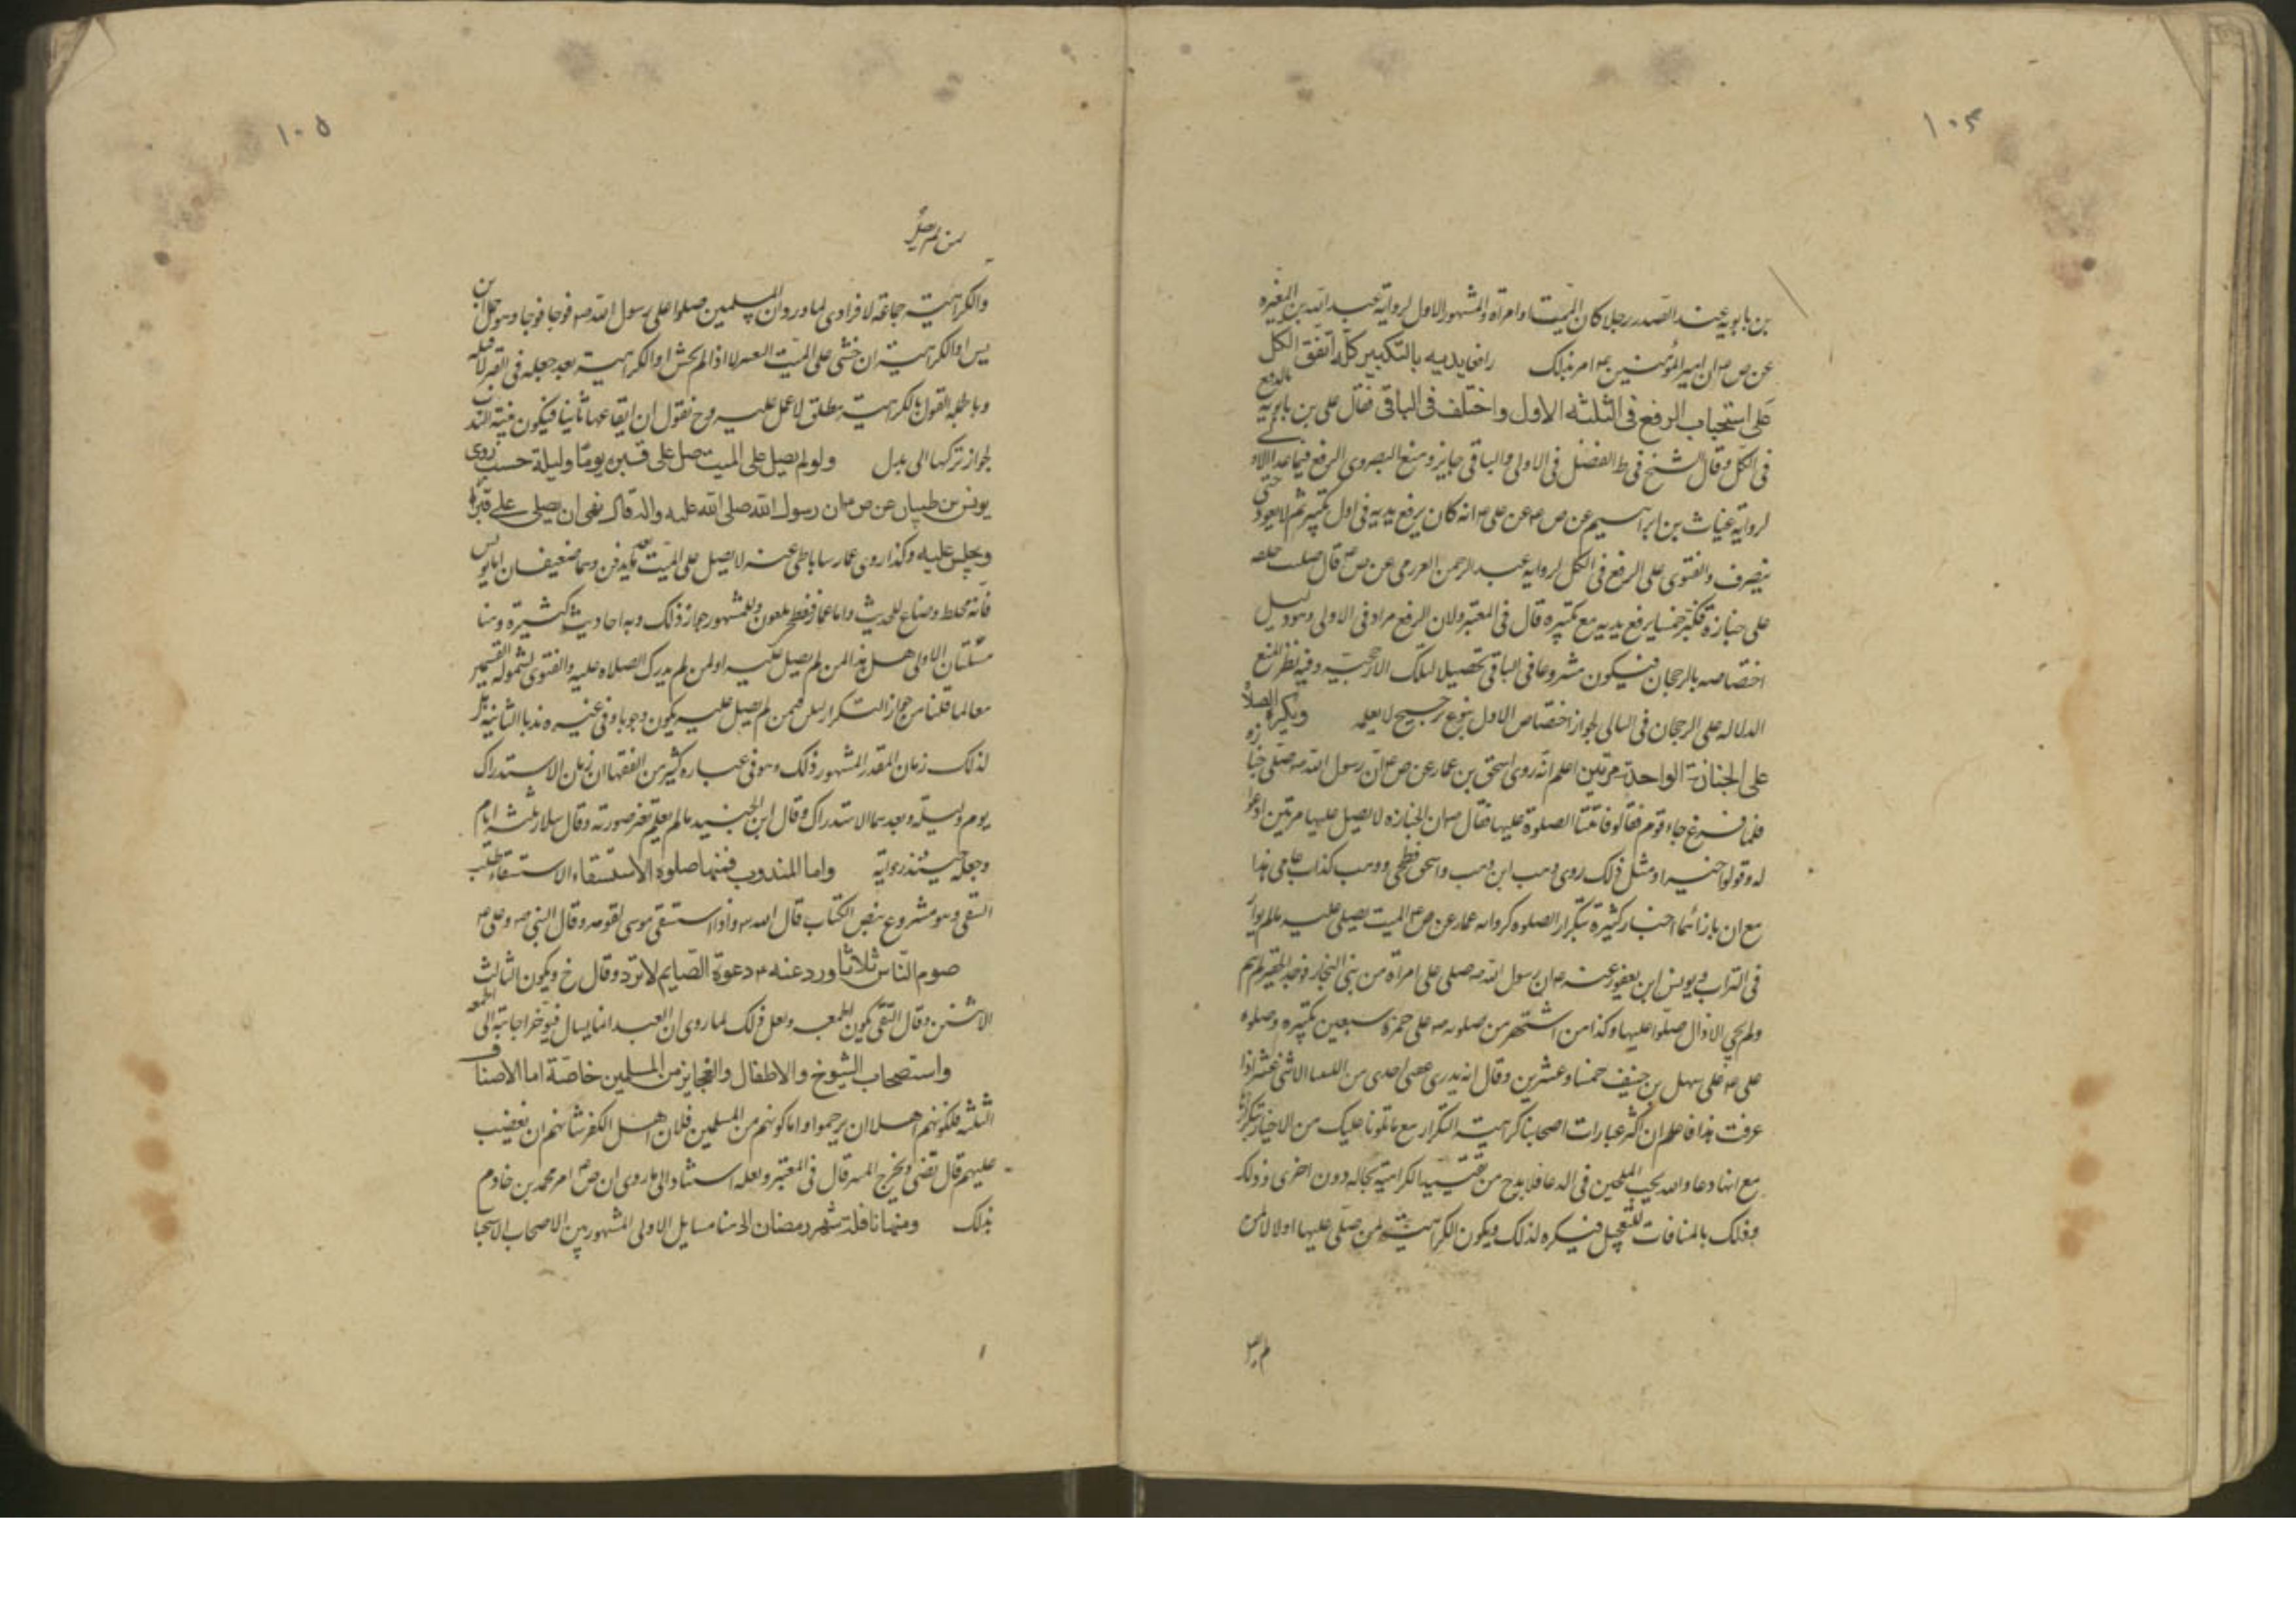 ١٠٤
بن بابويه عند الصدر رجلا كان الميت او امراة والمشهور الاول لرواية عبد الله بن المغيره
عن ص ع ان امير المؤمنين ع امر بذلك رافعا يديه بالتكبير كله اتفق الكل
على استحباب الرفع فى الثلثه الاول واختلف فى الباقى فقال على بن بابويه بالرفع
فى الكل وقال الشيخ فى ط الفضل فى الاولى والباقى جايز ومنع البصروى الرفع فيما عدا الاول
لرواية غياث بن ابراهيم عن ص ع عن على ع انه كان يرفع يديه فى اول تكبيره ثم لا يعود حتى
ينصرف والفتوى على الرفع فى الكل لرواية عبد الرحمن العرزمى عن ص ع قال صليت خلفه
على جنازة فكبر خمسا يرفع يديه مع تكبيره قال فى المعتبر ولان الرفع مراد فى الاولى وهو دليل
اختصاصه بالرجحان فيكون مشروعا فى الباقى تحصيلا لتلك الارجحية وفيه نظر لمنع
الدلاله على الرجحان فى التالى لجواز اختصاص الاول بنوع ترجيح لا يعلمه ويكره الصلاة
على الجنازة الواحدة مرتين اعلم انه روى اسحق بن عمار عن ص ع ان رسول الله ص صلى جنازه
فلما فرغ جاء قوم فقالوا فاتتنا الصلوة عليها فقال ص ان الجنازه لا يصلى عليها مرتين ادعوا
له وقولوا خيرا ومثل ذلك روى وهب ابن وهب واسحق فطحى ووهب كذاب عامى هذا
مع ان بازائهما اخبار كثيرة بتكرار الصلوه كرواية عمار عن ص ع الميت يصلى عليه مالم يوار
فى التراب ويونس ابن يعفور عنه ع ان رسول الله ص صلى على امراة من بنى النجار
ولم يجى الا قال صلوا عليها وكذا من اشتهر من صلوته ص على حمزة سبعين تكبيره وصلوه
على ع على سهل بن حنيف خمسا وعشرين وقال انه بدرى عقبى احدى من النقباء الاثنى عشر اذا
عرفت هذا فاعلم ان اكثر عبارات اصحابنا كراهية التكرار مع ما تلونا عليك من الاخبار بتكرارها
مع انها دعا والله يحب الملحين فى الدعا فلا بد ح من تقييد الكراهية بحاله دون اخرى وذلك
وذلك بالمنافات للتعجيل فيكره لذلك ويكون الكراهية لمن صلى عليها اولا لا لمن
لم يصل
١٠٥
لمن لم يصل
والكراهية جماعة لا فرادى لما ورد ان المسلمين صلوا على رسول الله ص فوجا فوجا وهو حمل ابن
يس او الكراهية ان خشى على الميت لا اذا لم يخش او الكراهية بعد جعله فى القبر لا قبله
وبالجملة القول بالكراهية مطلق لا عمل عليه وح نقول ان ايقاعها ثانيا فيكون بنية الندب
لجواز تركها لا الى بدل ولو لم يصل على الميت صلى على قبره يوما وليلة حسب روى
يونس بن ظبيان عن ص ع ان رسول الله صلى الله عليه واله قال نهى ان يصلى على قبر او
ويجلس عليه وكذا روى عمار ساباطى عنه لا يصلى على الميت بعد ما يدفن وهما ضعيفان اما يونس
فانه مخلط وضاع للحديث واما عمار ففطحى ملعون والمشهور جواز ذلك وبه احاديث كثيرة وهنا
مسئلتان الاولى هل هذا لمن لم يصل عليه او لمن لم يدرك الصلاه عليه والفتوى لشموله القسمين
معا لما قلنا من جواز التكرار لكن فيمن لم يصل عليه يكون وجوبا وفى غيره ندبا الثانية هل
لذلك زمان المقدر المشهور ذلك وهو فى عباره كثير من الفقها ان زمان الاستدراك
يوم وليلة وبعدهما لا استدراك وقال ابن الجنيد مالم يعلم تغير صورته وقال سلار ثلثه ايام
وجعله حينئذ رواية واما المندوب فمنها صلوه الاستسقاء الاستسقاء طلب
السقى وهو مشروع بنص الكتاب قال الله واذا استسقى موسى لقومه وقال النبى ص وعلى ع
صوم الناس ثلاثا ورد عنه ع دعوة الصايم لا ترد وقال خ ويكون الثالث
الاثنين وقال التقى يكون الجمعه ولعل ذلك لما روى ان العبد اذا يسال فيؤخر اجابته الى الجمعه
واستصحاب الشيوخ والاطفال والعجايز من المسلمين خاصة اما الاصناف
الثلثه فلكونهم اهلا ان يرحموا واما كونهم من المسلمين فلان اهل الكفر شانهم ان يغضب
عليهم قال تقى ويخرج المنبر قال فى المعتبر ولعله استنادا الى ما روى ان ص ع امر محمد بن خادم
بذلك ومنها نافلة شهر رمضان الى هنا مسايل الاولى المشهور بين الاصحاب الاستحبا